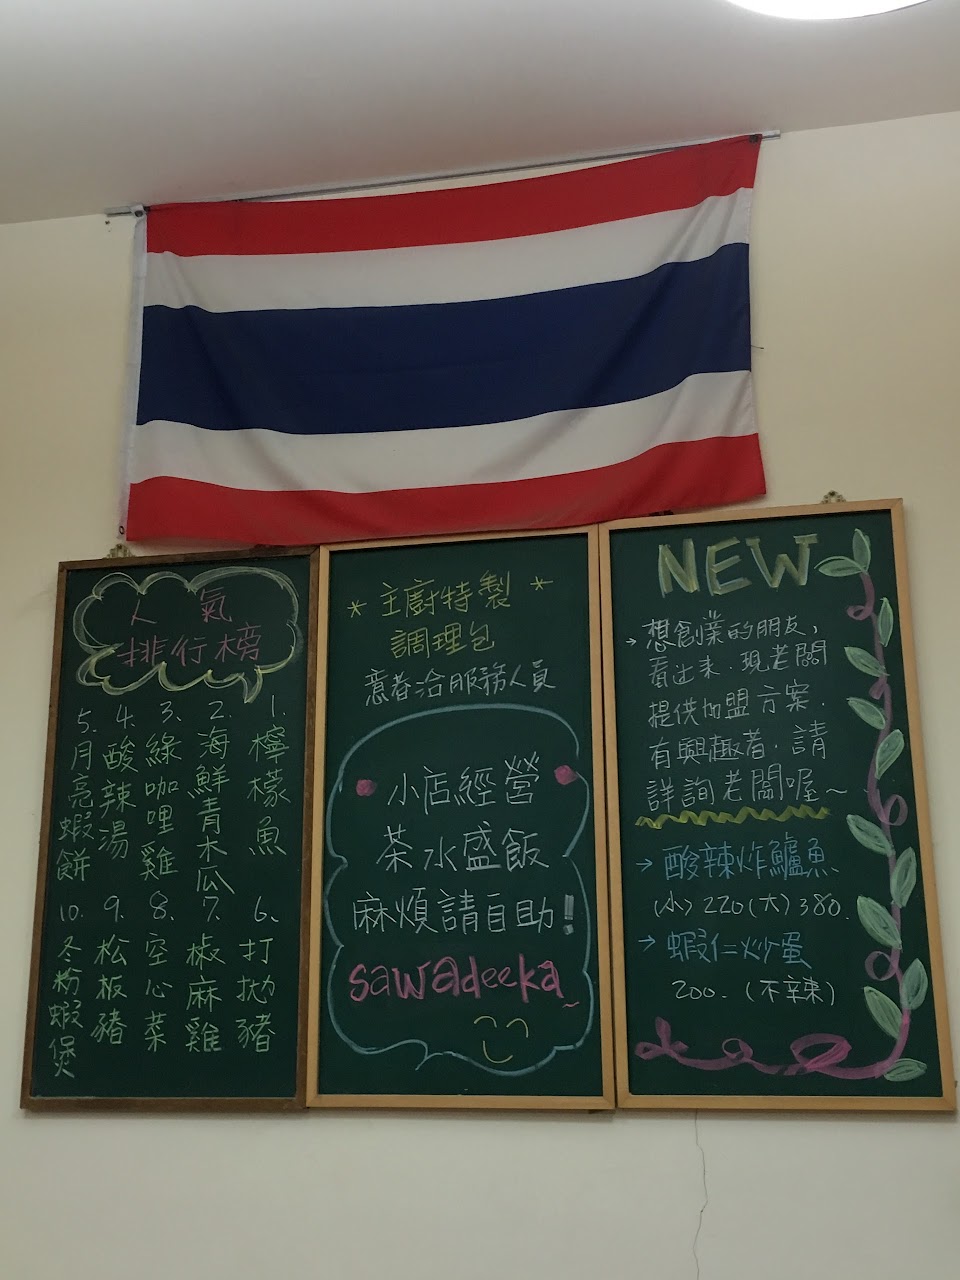 人氣
排行榜
1. 檸檬魚
2. 海鮮青木瓜
3. 綠咖哩雞
4. 酸辣湯
5. 月亮蝦餅
6. 打拋豬
7. 椒麻雞
8. 空心菜
9. 松板豬
10. 冬粉蝦煲
* 主廚特製 *
調理包
意者洽服務人員
小店經營
茶水盛飯
麻煩請自助!
sawadeeka~
NEW
→ 想創業的朋友,
看過來.現老闆
提供加盟方案.
有興趣者.請
詳詢老闆喔~
→ 酸辣炸鱸魚
(小) 220 (大) 380.
→ 蝦仁炒蛋
200. (不辣)